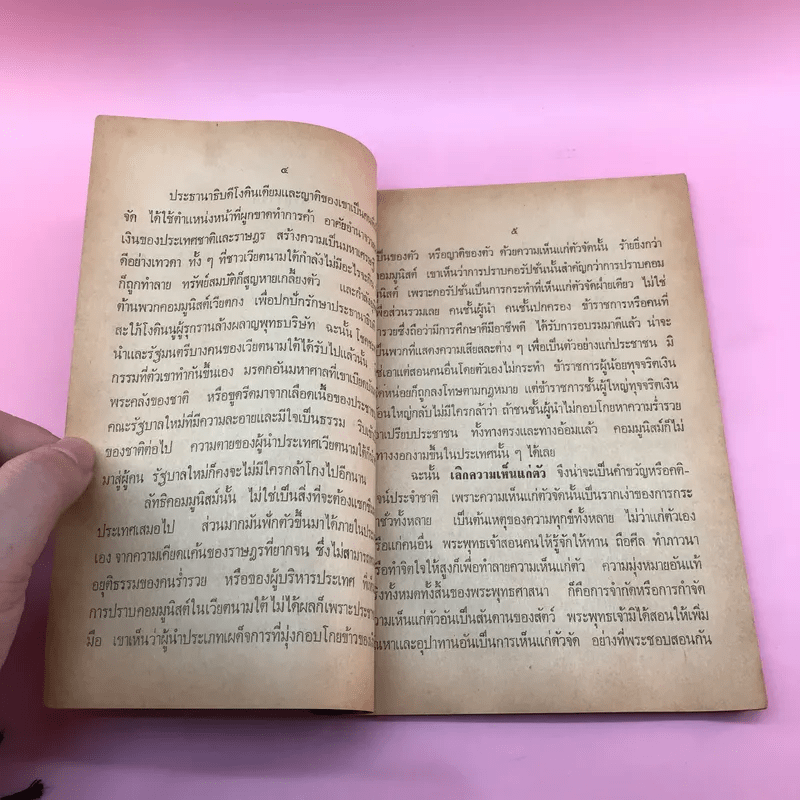 ๔
ประธานาธิบดีโงดินเดียมและญาติของเขาเป็นคนเห็น
จัด ได้ใช้ตำแหน่งหน้าที่ผูกขาดทำการค้า อาศัยอำนาจ
เงินของประเทศชาติและราษฎร สร้างความเป็นมหาเศรษฐี
ดีอย่างเทวดา ทั้ง ๆ ที่ชาวเวียดนามใต้กำลังไม่มีอะไรจะกิน
ก็ถูกทำลาย ทรัพย์สมบัติก็สูญหายเกลี้ยงตัว และกำลัง
ต้านพวกคอมมูนิสต์เวียตกง เพื่อปกปักรักษาประธานาธิบดี
สะใภ้โงดินนูผู้รุกรานล้างผลาญพุทธบริษัท ฉะนั้น
นำและรัฐมนตรีบางคนของเวียตนามใต้ได้รับไปแล้วนั้น
กรรมที่ตัวเขาทำกันขึ้นเอง มรดกอันมหาศาลที่เขาเบียดบัง
พระคลังของชาติ หรือขูดรีดมาจากเลือดเนื้อของประชาชน
คณะรัฐบาลใหม่ที่มีความละอายและมีใจเป็นธรรม ริบเข้า
ของชาติต่อไป ความตายของผู้นำประเทศเวียตนามใต้
มาสู่ผู้คน รัฐบาลใหม่ก็คงจะไม่มีใครกล้าโกงไปอีกนาน
ลัทธิคอมมูนิสม์นั้น ไม่ใช่เป็นสิ่งที่จะต้องแซกซึม
ประเทศเสมอไป ส่วนมากมันฟักตัวขึ้นมาได้ภายใน
เอง จากความเคียดแค้นของราษฎรที่ยากจน ซึ่งไม่สามารถ
อยุติธรรมของคนร่ำรวย หรือของผู้บริหารประเทศ ที่
การปราบคอมมูนิสต์ในเวียตนามใต้ ไม่ได้ผลก็เพราะ
มือ เขาเห็นว่าผู้นำประเภทเผด็จการที่มุ่งกอบโกยข้าวของ
๕
เป็นของตัว หรือญาติของตัว ด้วยความเห็นแก่ตัวจัดนั้น ร้ายยิ่งกว่า
คอมมูนิสต์ เขาเห็นว่าการปราบคอรัปชั่นนั้นสำคัญกว่าการปราบคอม
มูนิสต์ เพราะคอรัปชั่นเป็นการกระทำที่เห็นแก่ตัวจัดฝ่ายเดียว ไม่ใช่
เพื่อส่วนรวมเลย คนชั้นผู้นำ คนชั้นปกครอง ข้าราชการหรือคนที่
ร่ำรวยซึ่งถือว่ามีการศึกษาดีมีอาชีพดี ได้รับการอบรมมาดีแล้ว น่าจะ
เป็นพวกที่แสดงความเสียสละต่าง ๆ เพื่อเป็นตัวอย่างแก่ประชาชน มิ
ใช่เอาแต่สอนคนอื่นโดยตัวเองไม่กระทำ ข้าราชการผู้น้อยทุจริตเงิน
นิดหน่อยก็ถูกลงโทษตามกฎหมาย แต่ข้าราชการชั้นผู้ใหญ่ทุจริตเงิน
ก้อนใหญ่กลับไม่มีใครกล้าว่า ถ้าชนชั้นผู้นำไม่กอบโกยหาความร่ำรวย
เอาเปรียบประชาชน ทั้งทางตรงและทางอ้อมแล้ว คอมมูนิสม์ก็ไม่
มีทางงอกงามขึ้นในประเทศนั้น ๆ ได้เลย
ฉะนั้น เลิกความเห็นแก่ตัว จึงน่าจะเป็นคำขวัญหรือคติ-
พจน์ประจำชาติ เพราะความเห็นแก่ตัวจัดนั้นเป็นรากเง่าของการกระ
ทำชั่วทั้งหลาย เป็นต้นเหตุของความทุกข์ทั้งหลาย ไม่ว่าแก่ตัวเอง
หรือแก่คนอื่น พระพุทธเจ้าสอนคนให้รู้จักให้ทาน ถือศีล ทำภาวนา
หรือทำจิตใจให้สูงก็เพื่อทำลายความเห็นแก่ตัว ความมุ่งหมายอันแท้
จริงทั้งหมดทั้งสิ้นของพระพุทธศาสนา ก็คือการจำกัดหรือการกำจัด
ความเห็นแก่ตัวอันเป็นสันดานของสัตว์ พระพุทธเจ้ามิได้สอนให้เพิ่ม
ตัณหาและอุปาทานอันเป็นการเห็นแก่ตัวจัด อย่างที่พระชอบสอนกัน